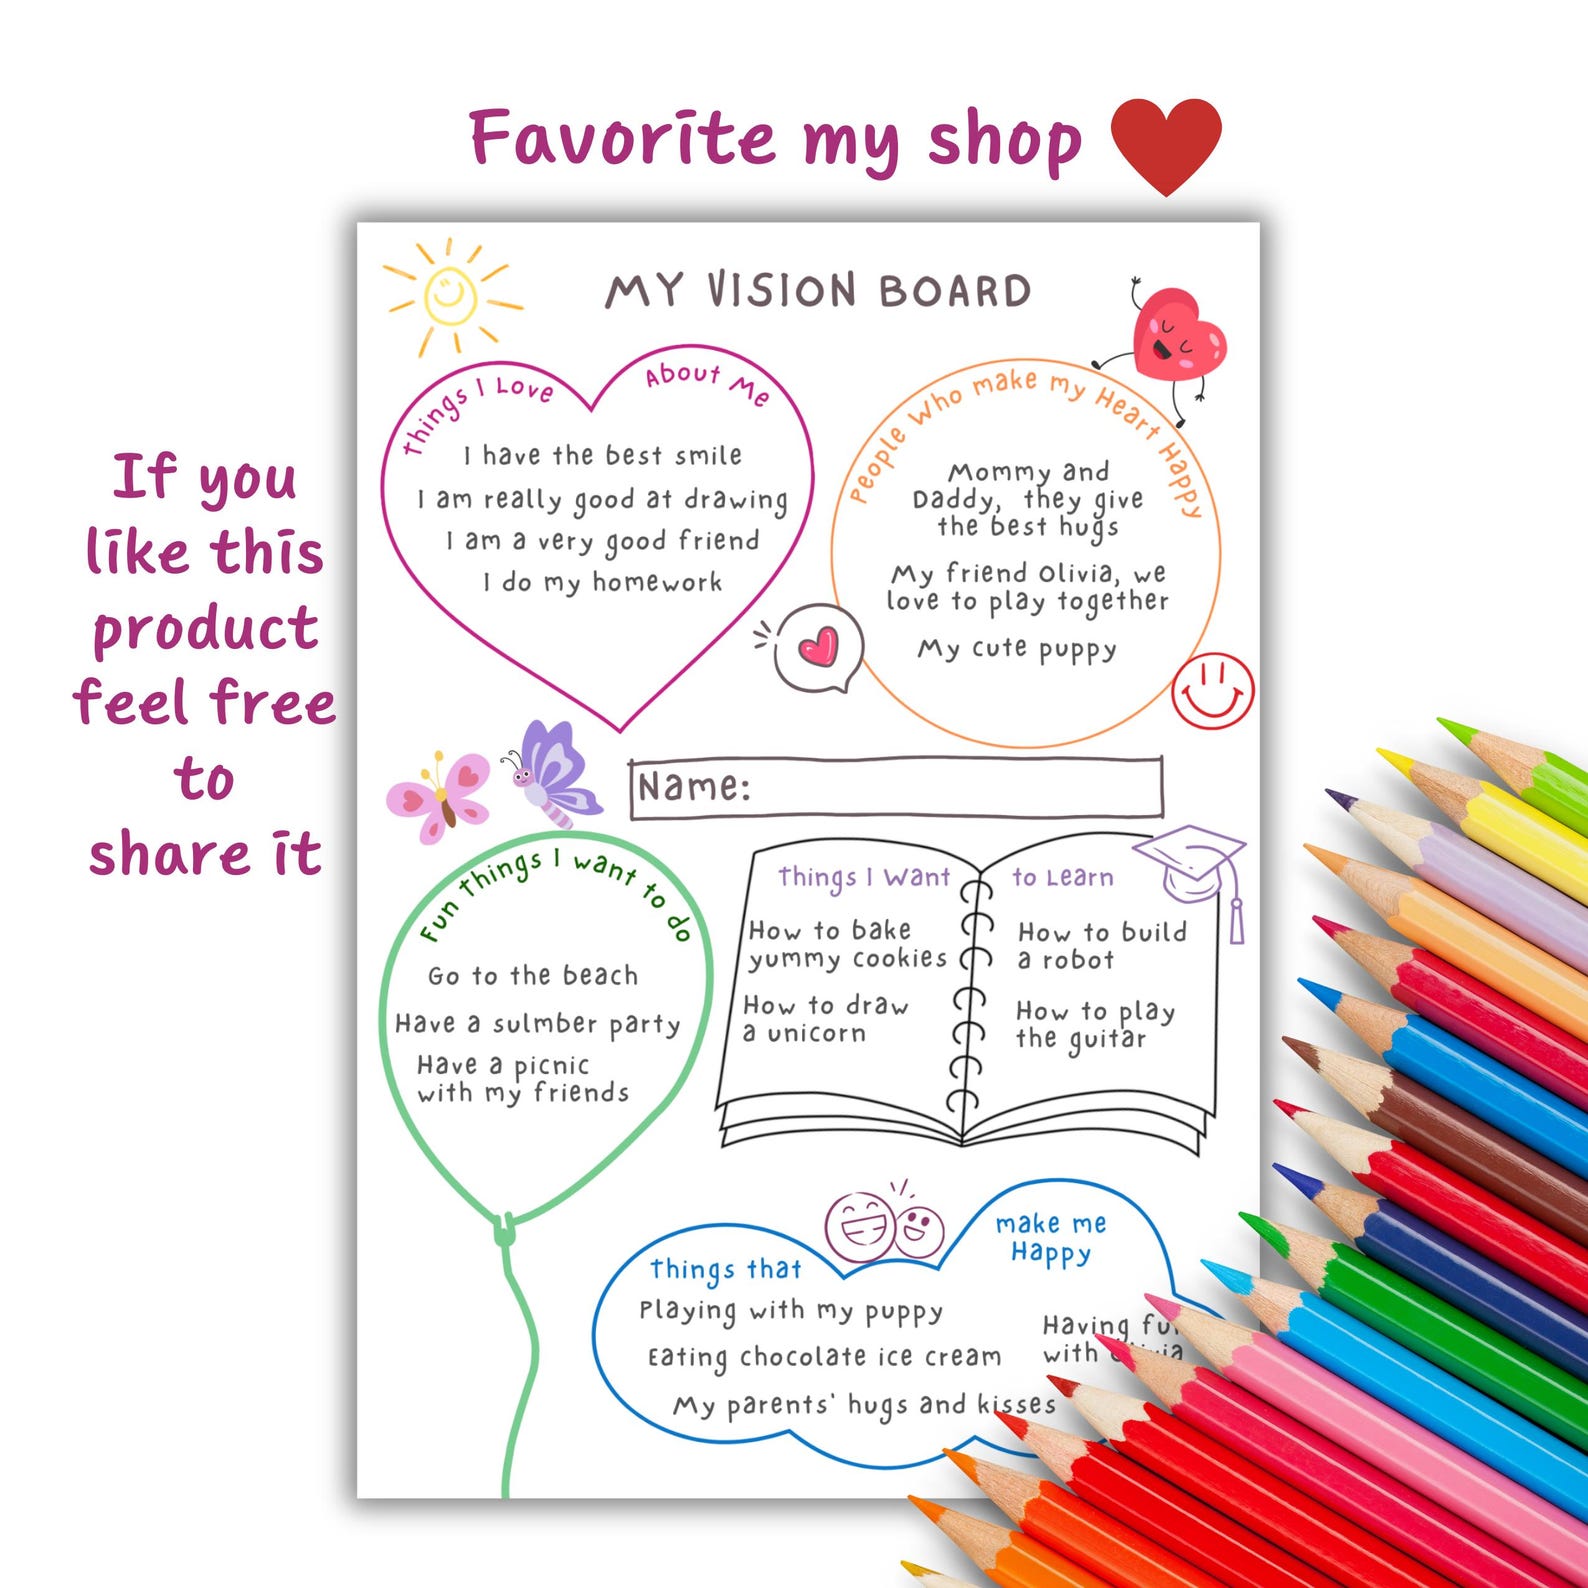 Favorite my shop
If you
like this
product
feel free
to
share it
MY VISION BOARD
Things I Love About Me
I have the best smile
I am really good at drawing
I am a very good friend
I do my homework
People Who make my Heart Happy
Mommy and
Daddy, they give
the best hugs
My friend Olivia, we
love to play together
My cute puppy
Name:
Fun Things I want to do
Go to the beach
Have a sulmber party
Have a picnic
with my friends
Things I Want to Learn
How to bake
yummy cookies
How to draw
a unicorn
How to build
a robot
How to play
the guitar
Things that make me
Happy
Playing with my puppy
Eating chocolate ice cream
My parents' hugs and kisses
Having
with